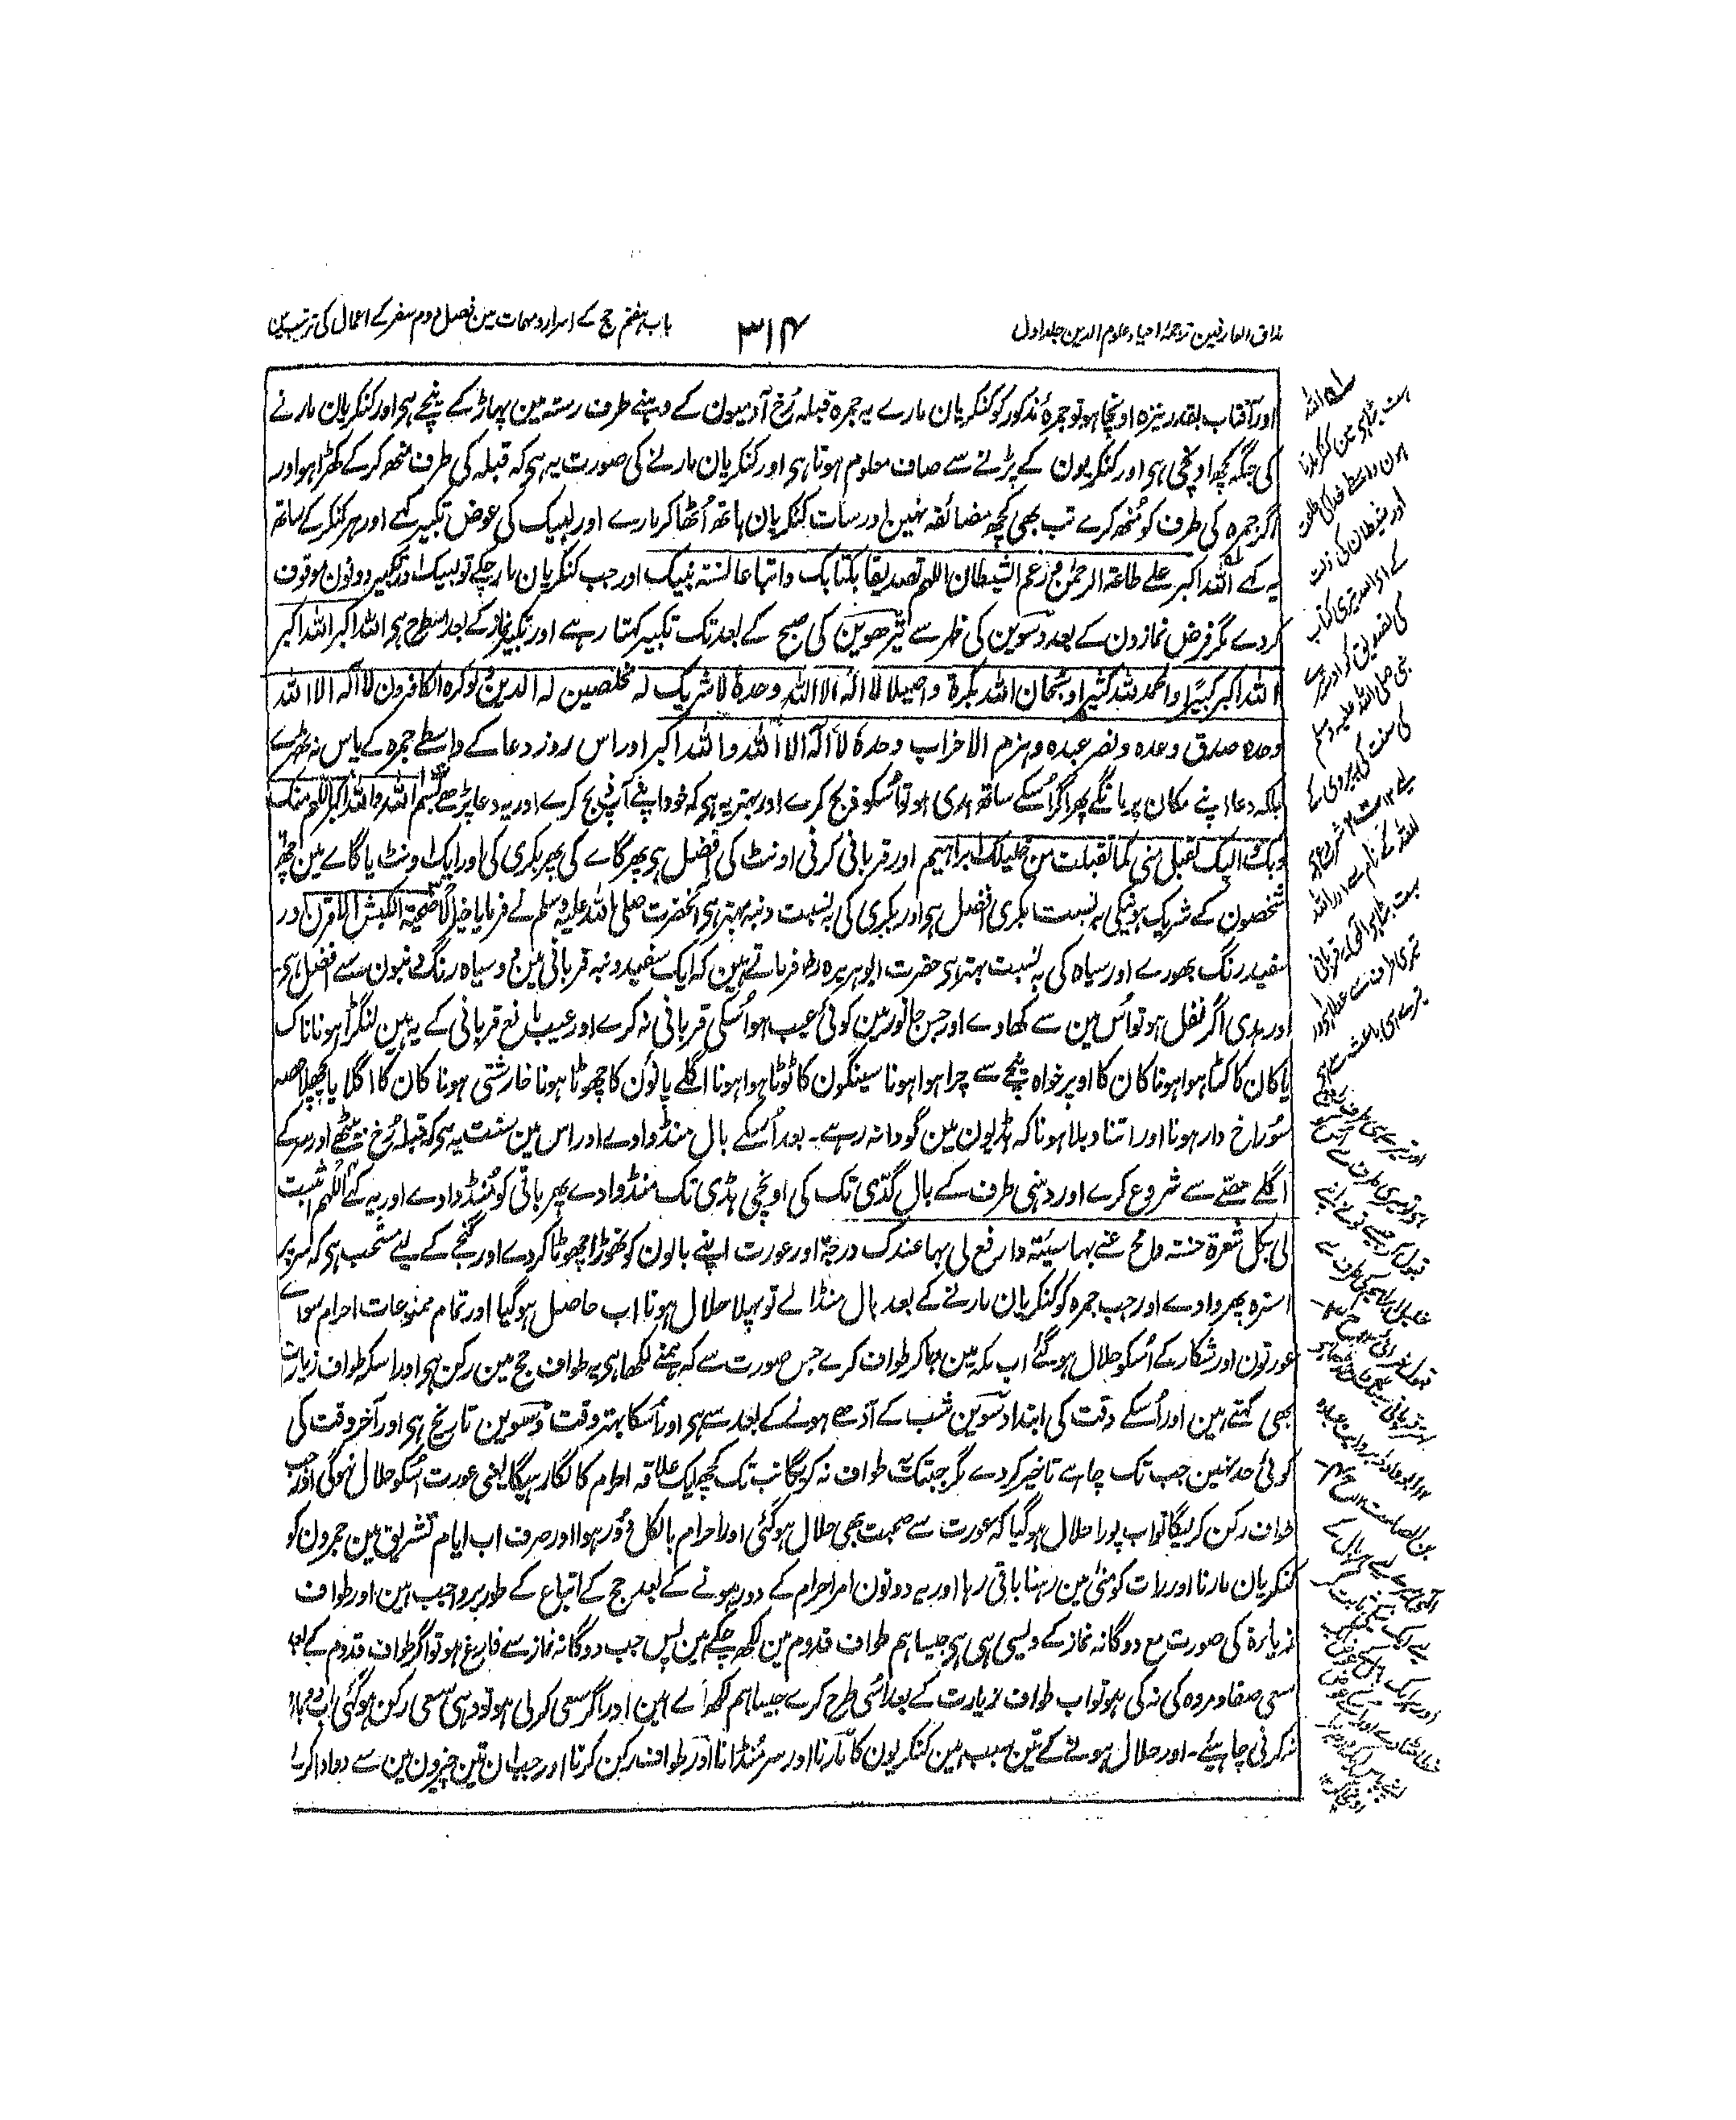 مذاق العارفین ترجمۂ احیاء علوم الدین جلد اول
۳۱۴
باب ہفتم حج کے اسرار و مہمات مین فصل دوم سفر کے اعمال کی ترتیب مین
اور آفتاب بقدر نیزہ اونچا ہو تو جمرۂ مذکور کو کنکریان مارے یہ جمرہ قبلہ رُخ آدمیون کے دہنے طرف رستہ مین پہاڑ کے نیچے ہی اور کنکریان مارنے
کی جگہ کچھ اونچی ہی اور کنکریون کے پڑنے سے صاف معلوم ہوتا ہی اور کنکریان مارنے کی صورت یہ ہی کہ قبلہ کی طرف منھ کر کے کھڑا ہو اور
اگر جمرہ کی طرف کو مُنھ کرے تب بھی کچھ مضائقہ نہین اور سات کنکریان ہاتھ اُٹھا کر مارے اور لبیک کی عوض تکبیر کہے اور ہر کنکر کے ساتھ
یہ کہے اللہ اکبر علے طاعۃ الرحمٰن و رغم الشیطان اللہم تصدیقا بکتابک و اتباعا لسنۃ نبیک اور جب کنکریان مار چکے تو لبیک اور تکبیر دونون موقوف
کر دے مگر فرض نمازون کے بعد دسوین کی ظہر سے تیرھوین کی صبح کے بعد تک تکبیر کہتا رہے اور تکبیر نماز کے بعد اسطرح ہی اللہ اکبر اللہ اکبر
اللہ اکبر کبیرًا و الحمد للہ کثیرا و سُبحان اللہ بکرۃ و اصیلا لا الٰہ الا اللہ وحدہٗ لا شریک لہ مخلصین لہ الدین و لو کرہ الکافرون لا الٰہ الا اللہ
وحدہ صدق وعدہ و نصر عبدہ و ہزم الاحزاب وحدہٗ لا الٰہ الا اللہ و اللہ اکبر اور اس روز دعا کے واسطے جمرہ کے پاس نہ ٹھہرے
بلکہ دعا اپنے مکان پر مانگے پھر اگر اُسکے ساتھ ہدی ہو تو اُسکو ذبح کرے اور بہتر یہ ہی کہ خود اپنے آپ ذبح کرے اور یہ دعا پڑھے بسم اللہ و اللہ اکبر اللہم منک
و بک و الیک تقبل منی کما تقبلت من خلیلک ابراہیم اور قربانی کرنی اونٹ کی افضل ہی پھر گاے کی پھر بکری کی اور ایک اونٹ یا گاے مین چھ
شخصون کے شریک ہونیکی بہ نسبت بکری افضل ہی اور بکری کی بہ نسبت دنبہ بہتر ہی آنحضرت صلی اللہ علیہ وسلم نے فرمایا خیر الاضحیۃ الکبش الاقرن اور
سفید رنگ بھورے اور سیاہ کی بہ نسبت بہتر ہی حضرت ابو ہریرہ رض فرماتے ہین کہ ایک سفید دنبہ قربانی مین دو سیاہ رنگ دنبون سے افضل ہی
اور ہدی اگر نفل ہو تو اُس مین سے کھاوے اور جس جانور مین کوئی عیب ہو اُسکی قربانی نہ کرے اور عیب مانع قربانی کے یہ ہین لنگڑا ہونا ناک
یا کان کا کٹا ہوا ہونا کان کا اوپر خواہ نیچے سے چرا ہوا ہونا سینگون کا ٹوٹا ہوا ہونا اگلے پانوُن کا چھوٹا ہونا خارشتی ہونا کان کا اگلا یا پچھلا حصہ
سُوراخ دار ہونا اور اتنا دبلا ہونا کہ ہڈیون مین گودا نہ رہے۔ بعد اُسکے بال منڈوادے اور اس مین سنت یہ ہی کہ قبلہ رُخ بیٹھے اور سر کے
اگلے حصّے سے شروع کرے اور دہنی طرف کے بال گدّی تک کی اونچی ہڈی تک منڈوادے پھر باقی کو مُنڈوادے اور یہ کہے اللّہم اثبت
لی بکل شعرۃ حسنۃ و امح عنے بہا سیئۃ و ارفع لی بہا عندک درجۃ اور عورت اپنے بالون کو تھوڑا چھوٹا کردے اور گنجے کے لیے مستحب ہی کہ سر پر
استرہ پھروا دے اور جب جمرہ کو کنکریان مارنے کے بعد بال منڈالے تو پہلا حلال ہونا اب حاصل ہو گیا اور تمام ممنوعات احرام سواے
عورتون اور شکار کے اُسکو حلال ہو گئے اب مکہ مین جاکر طواف کرے جس صورت سے کہ ہمنے لکھا ہی یہ طواف حج مین رکن ہی اور اسکو طواف زیارت
بھی کہتے ہین اور اُسکے وقت کی ابتدا دسوین شب کے آدھے ہونے کے بعد سے ہی اور اُسکا بہتر وقت دسوین تاریخ ہی اور آخر وقت کی
کوئی حد نہین جب تک چاہے تاخیر کر دے مگر جبتک یہ طواف نہ کریگا تب تک کچھ ایک علاقہ احرام کا لگا رہیگا یعنی عورت اُسکو حلال نہوگی اور جب
طواف رکن کریگا تو اب پورا حلال ہو گیا کہ عورت سے صحبت بھی حلال ہو گئی اور احرام بالکل دُور ہوا اور صرف اب ایام تشریق مین جمرون کو
کنکریان مارنا اور رات کو منٰی مین رہنا باقی رہا اور یہ دونون امر احرام کے دور ہونے کے بعد حج کے اتباع کے طور پر واجب ہین اور طواف
زیارۃ کی صورت مع دوگانہ نماز کے ویسی ہی ہی جیسا ہم طواف قدوم مین لکھ چکے ہین پس جب دوگانہ نماز سے فارغ ہو تو اگر طواف قدوم کے بعد
سعی صفا و مروہ کی نہ کی ہو تو اب طواف زیارت کے بعد اُسی طرح کرے جیسا ہم لکھ آے ہین اور اگر سعی کر لی ہو تو وہی سعی رکن ہو گئی اب دوبارہ
نہ کرنی چاہیئے۔ اور حلال ہونے کے تین سبب ہین کنکریون کا مارنا اور سر مُنڈانا اور طواف رکن کرنا اور جب ان تین چیزون مین سے دو ادا کرے
اللہ
بہت بڑا ہی مین کنکر مارتا
ہون واسطے خدا کی طاعت
اور شیطان کی ذلت
کے ای اللہ تیری کتاب
کی تصدیق کر اور تیرے
نبی صلی اللہ علیہ وسلم
کی سنت کی پیروی کے
اللہ کے نام سے اور اللہ
بہت بڑا ہی الٰہی یہ قربانی
تیری طرف سے عطا ہی اور